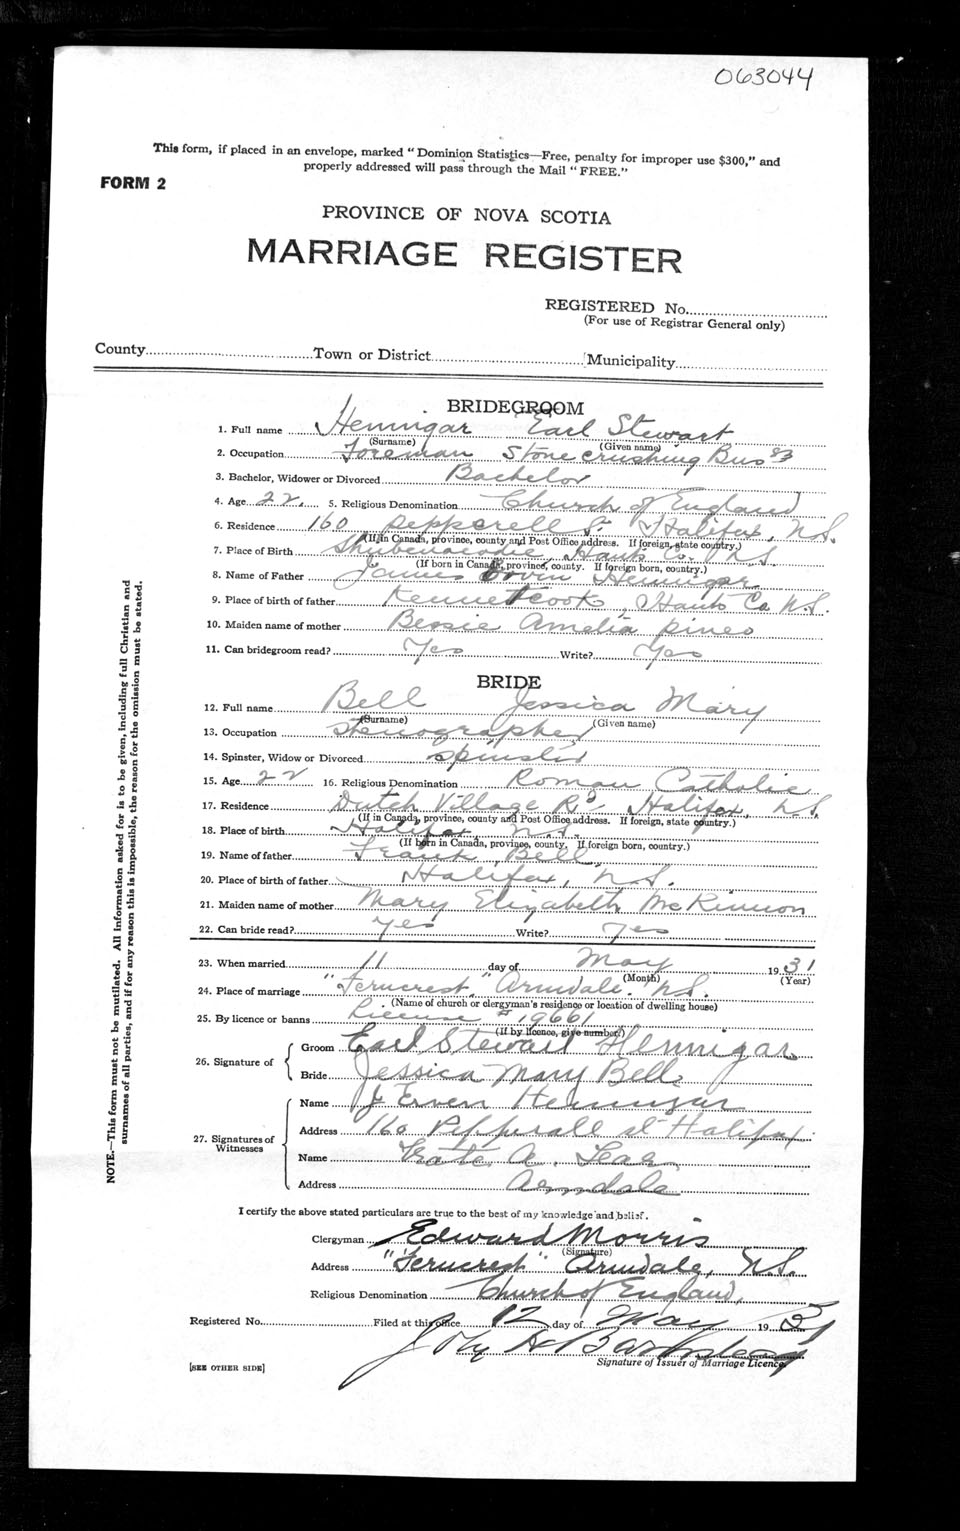 063044
This form, if placed in an envelope, marked "Dominion Statistics—Free, penalty for improper use $300," and
properly addressed will pass through the Mail "FREE."
FORM 2
PROVINCE OF NOVA SCOTIA
MARRIAGE REGISTER
REGISTERED No.
(For use of Registrar General only)
County Town or District Municipality
BRIDEGROOM
1. Full name Hennigar Earl Stewart
(Surname) (Given name)
2. Occupation Foreman Stone crushing Bus
3. Bachelor, Widower or Divorced Bachelor
4. Age 22. 5. Religious Denomination Church of England
6. Residence 160 Pepperell St. Halifax, N.S.
(If in Canada, province, county and Post Office address. If foreign, state country.)
7. Place of Birth Shubenacadie, Hants Co. N.S.
(If born in Canada, province, county. If foreign born, country.)
8. Name of Father James Ervin Hennigar
9. Place of birth of father Kennetcook, Hants Co. N.S.
10. Maiden name of mother Bessie Amelia Pineo
11. Can bridegroom read? Yes Write? Yes
BRIDE
12. Full name Bell Jessica Mary
(Surname) (Given name)
13. Occupation Stenographer
14. Spinster, Widow or Divorced Spinster
15. Age 22 16. Religious Denomination Roman Catholic
17. Residence Dutch Village Rd Halifax, N.S.
(If in Canada, province, county and Post Office address. If foreign, state country.)
18. Place of birth Halifax N.S.
(If born in Canada, province, county. If foreign born, country.)
19. Name of father Frank Bell
20. Place of birth of father Halifax, N.S.
21. Maiden name of mother Mary Elizabeth McKinnon
22. Can bride read? Yes Write? Yes
23. When married 11 day of May 1931
(Month) (Year)
24. Place of marriage "Ferncrest," Armdale. N.S.
(Name of church or clergyman's residence or location of dwelling house)
25. By licence or banns License # 19661
(If by licence, give number)
26. Signature of
Groom Earl Stewart Hennigar
Bride Jessica Mary Bell
27. Signatures of Witnesses
Name J Erven Hennigar
Address 160 Pepperall St Halifax
Name Kate A.
Address Armdale
I certify the above stated particulars are true to the best of my knowledge and belief.
Clergyman Edward Morris
(Signature)
Address "Ferncrest" Armdale, N.S.
Religious Denomination Church of England,
Registered No. Filed at this office 12 day of May 1931
Signature of Issuer of Marriage Licence
[SEE OTHER SIDE]
NOTE.—This form must not be mutilated. All Information asked for is to be given, including full Christian and
surnames of all parties, and if for any reason this is impossible, the reason for the omission must be stated.